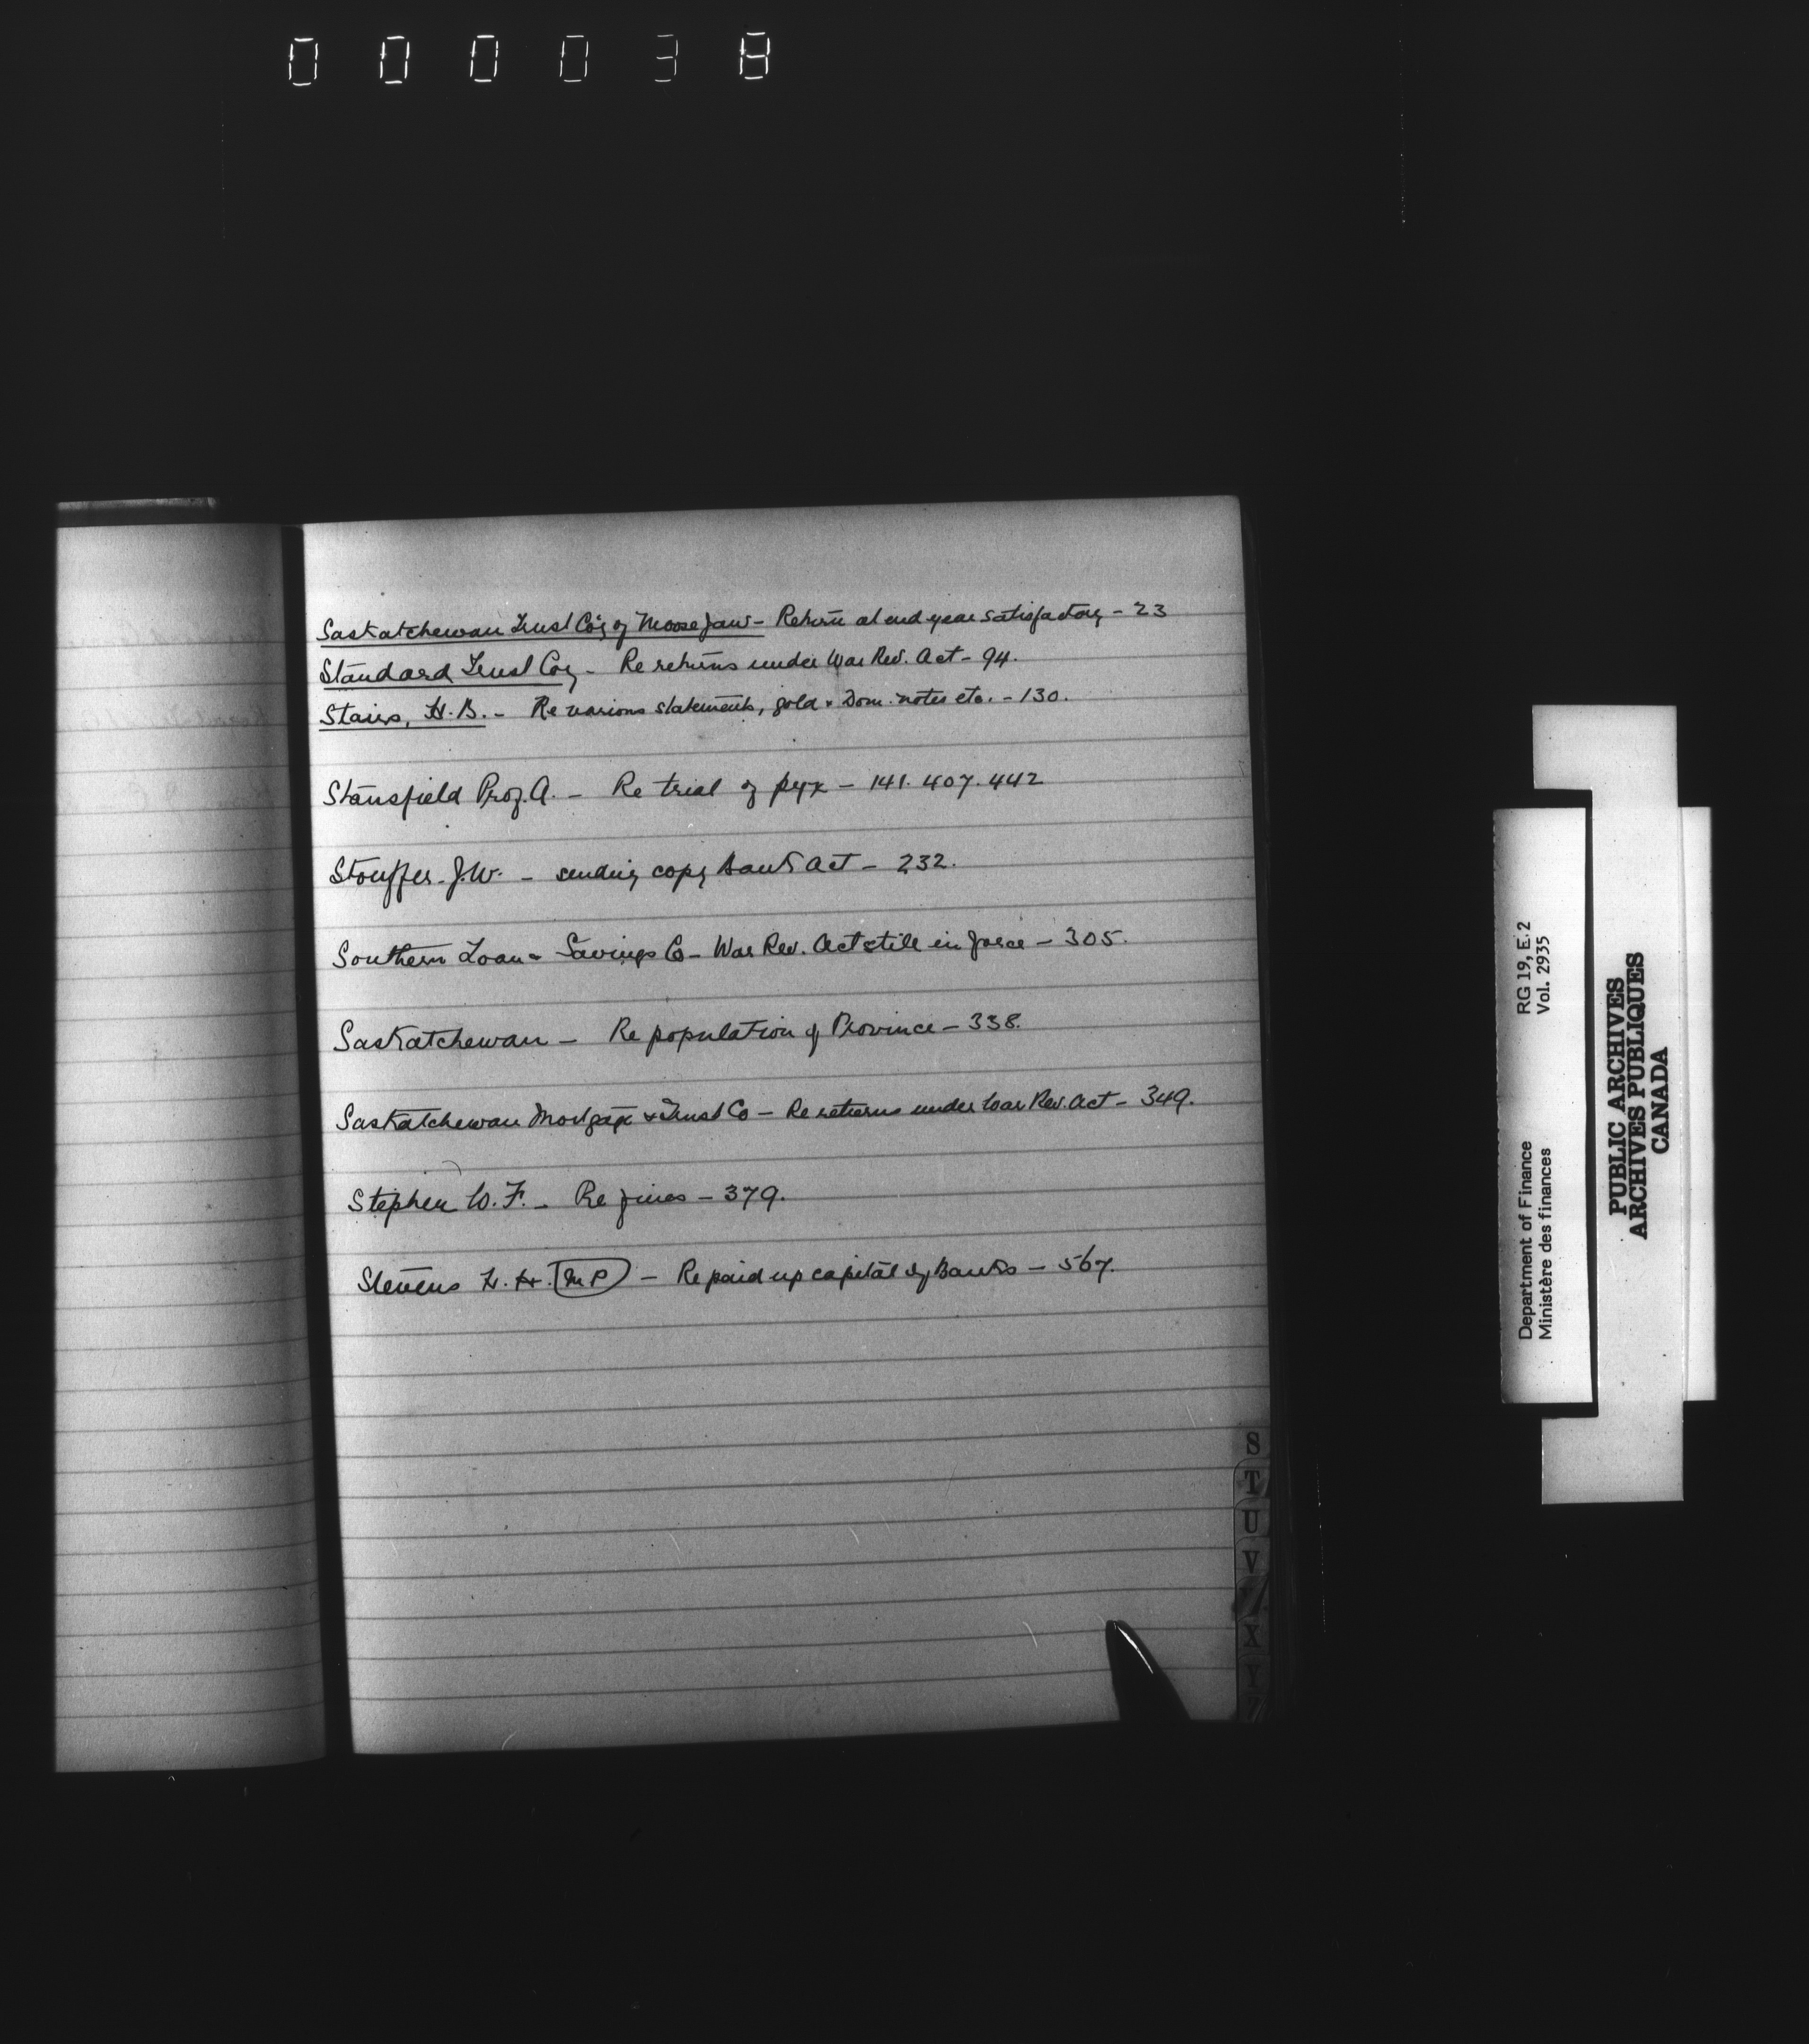 000038
Saskatchewan Trust Coy of Moose Jaw - Return at end year satisfactory - 23
Standard Trust Coy - Re returns under War Rev. Act - 94.
Stairs, H.B. - Re various statements, gold & Dom. notes etc. - 130.
Stansfield Prof. A. - Re trial of pyx - 141. 407. 442
Stouffer. J.W. - sending copy Bank Act - 232.
Southern Loan & Savings Co - War Rev. Act still in force - 305.
Saskatchewan - Re population of Province - 338.
Saskatchewan Mortgage & Trust Co - Re returns under War Rev. Act - 349.
Stephen W. F. - Re fines - 379.
Stevens H. H. (M P) - Re paid up capital of Banks - 567.
S
T
U
V
X
Y
Z
Department of Finance RG 19, E.2
Ministère des finances Vol. 2935
PUBLIC ARCHIVES
ARCHIVES PUBLIQUES
CANADA